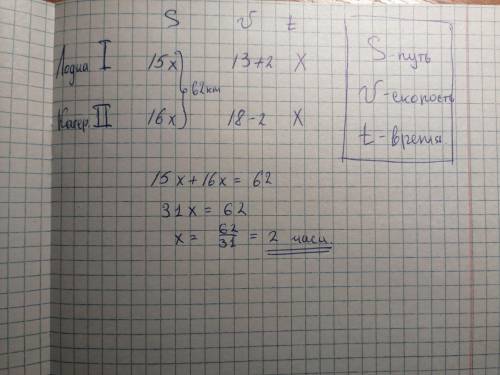 S v t
Лодка I 15x 13+2 X
62км
Катер II 16x 18-2 X
S-путь
v-скорость
t-время
15x+16x=62
31x=62
x=62/31=2 часа.